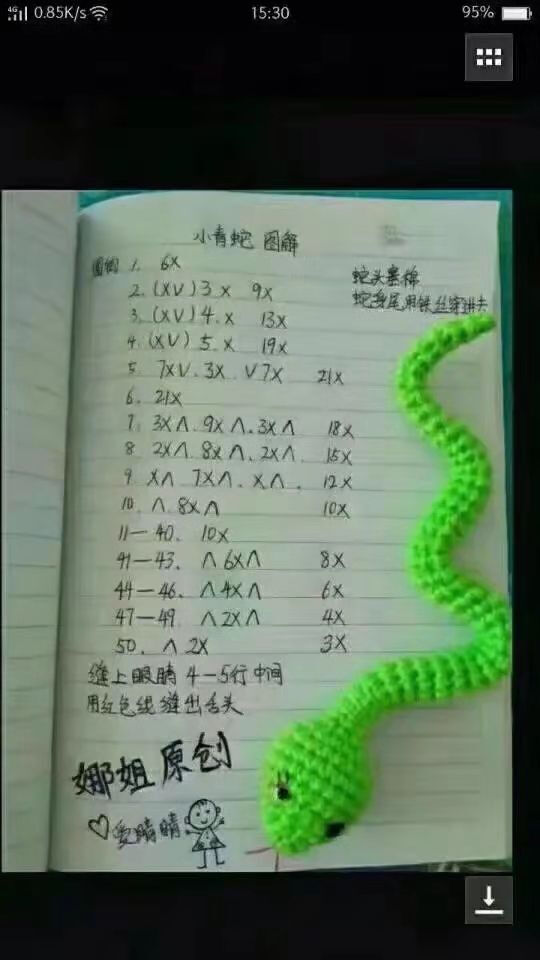 4G 0.85K/s 15:30 95%
小青蛇 图解
蛇头塞棉
蛇身尾用铁丝穿进去
圈钩 1. 6X
2. (XV)3.X 9X
3. (XV)4.X 13X
4. (XV)5.X 19X
5. 7XV.3X.V7X 21X
6. 21X
7. 3XΛ.9XΛ.3XΛ 18X
8. 2XΛ.8XΛ.2XΛ. 15X
9. XΛ 7XΛ.XΛ. 12X
10. Λ.8XΛ 10X
11—40. 10X
41—43. Λ6XΛ 8X
44—46. Λ4XΛ 6X
47—49. Λ2XΛ 4X
50. Λ2X 3X
缝上眼睛 4—5行中间
用红色线缝出舌头
娜姐原创
♡爱晴晴